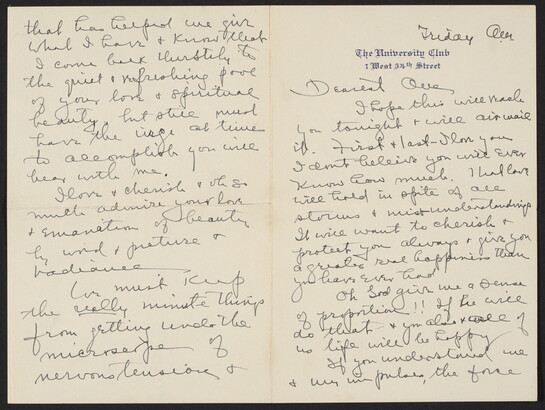 Friday
The University Club
1 West 54th Street
Dearest
I hope this will reach
you tonight & will air mail
it. First & last - I love you
I don't believe you will ever
know how much. That love
will hold in spite of all
storms & misunderstandings
It will want to cherish &
protect you always & give you
a greater real happiness than
you have ever had
Oh God give me a sense
of proportion!! If he will
do that & you also & all of
us life will be happy
If you understand me
& my impulses, the force
that has helped me give
what I have & know that
I come back thirstily to
the quiet & refreshing pool
of your love & spiritual
beauty, but still must
have the urge at time
to accomplish you will
bear with me.
I love & cherish & oh so
much admire your love
& emanation of beauty
by word & picture &
radiance
We must keep
the really minute things
from getting under the
microscope of
nervous tension &